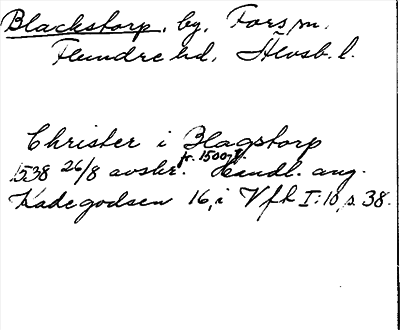 Blackstorp, by, Fors sn,
Flundre hd, Älvsb. l.
Christer i Blagstorp
fr. 1500-t.
1538 26/8 avskr. Handl. ang.
Kadegodsen 16, i Vfh I:10, s. 38.